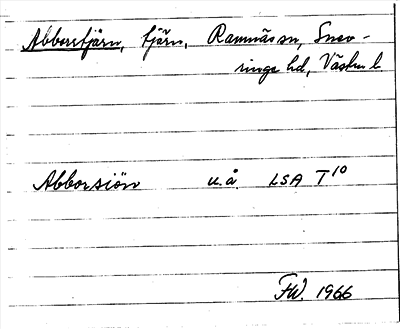 Abborrtjärn, tjärn, Ramnäs sn, Snev-
ringe hd, Västm. l.
Abborsiön u.å. LSA T10
FW. 1966